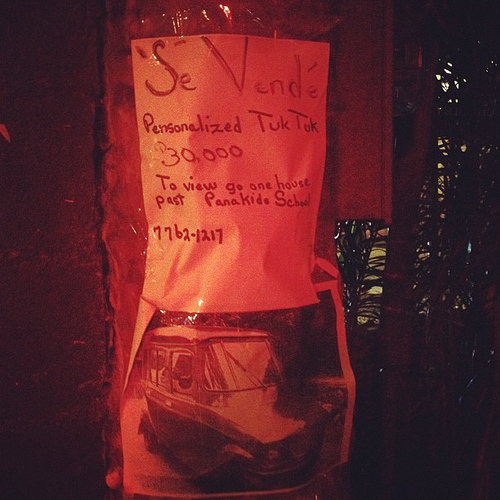 "Se Vende"
Personalized TukTuk
Q30,000
To view go one house
past Panakids School
7762-1217